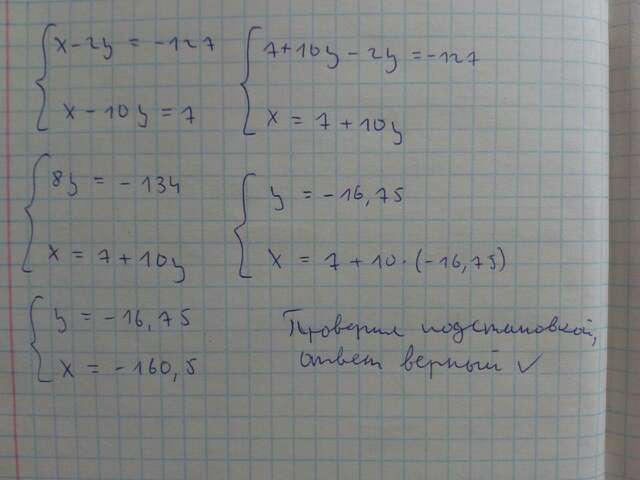 x - 2y = -127
x - 10y = 7
7 + 10y - 2y = -127
x = 7 + 10y
8y = -134
x = 7 + 10y
y = -16,75
x = 7 + 10 · (-16,75)
y = -16,75
x = -160,5
Проверил подстановкой,
ответ верный ✓